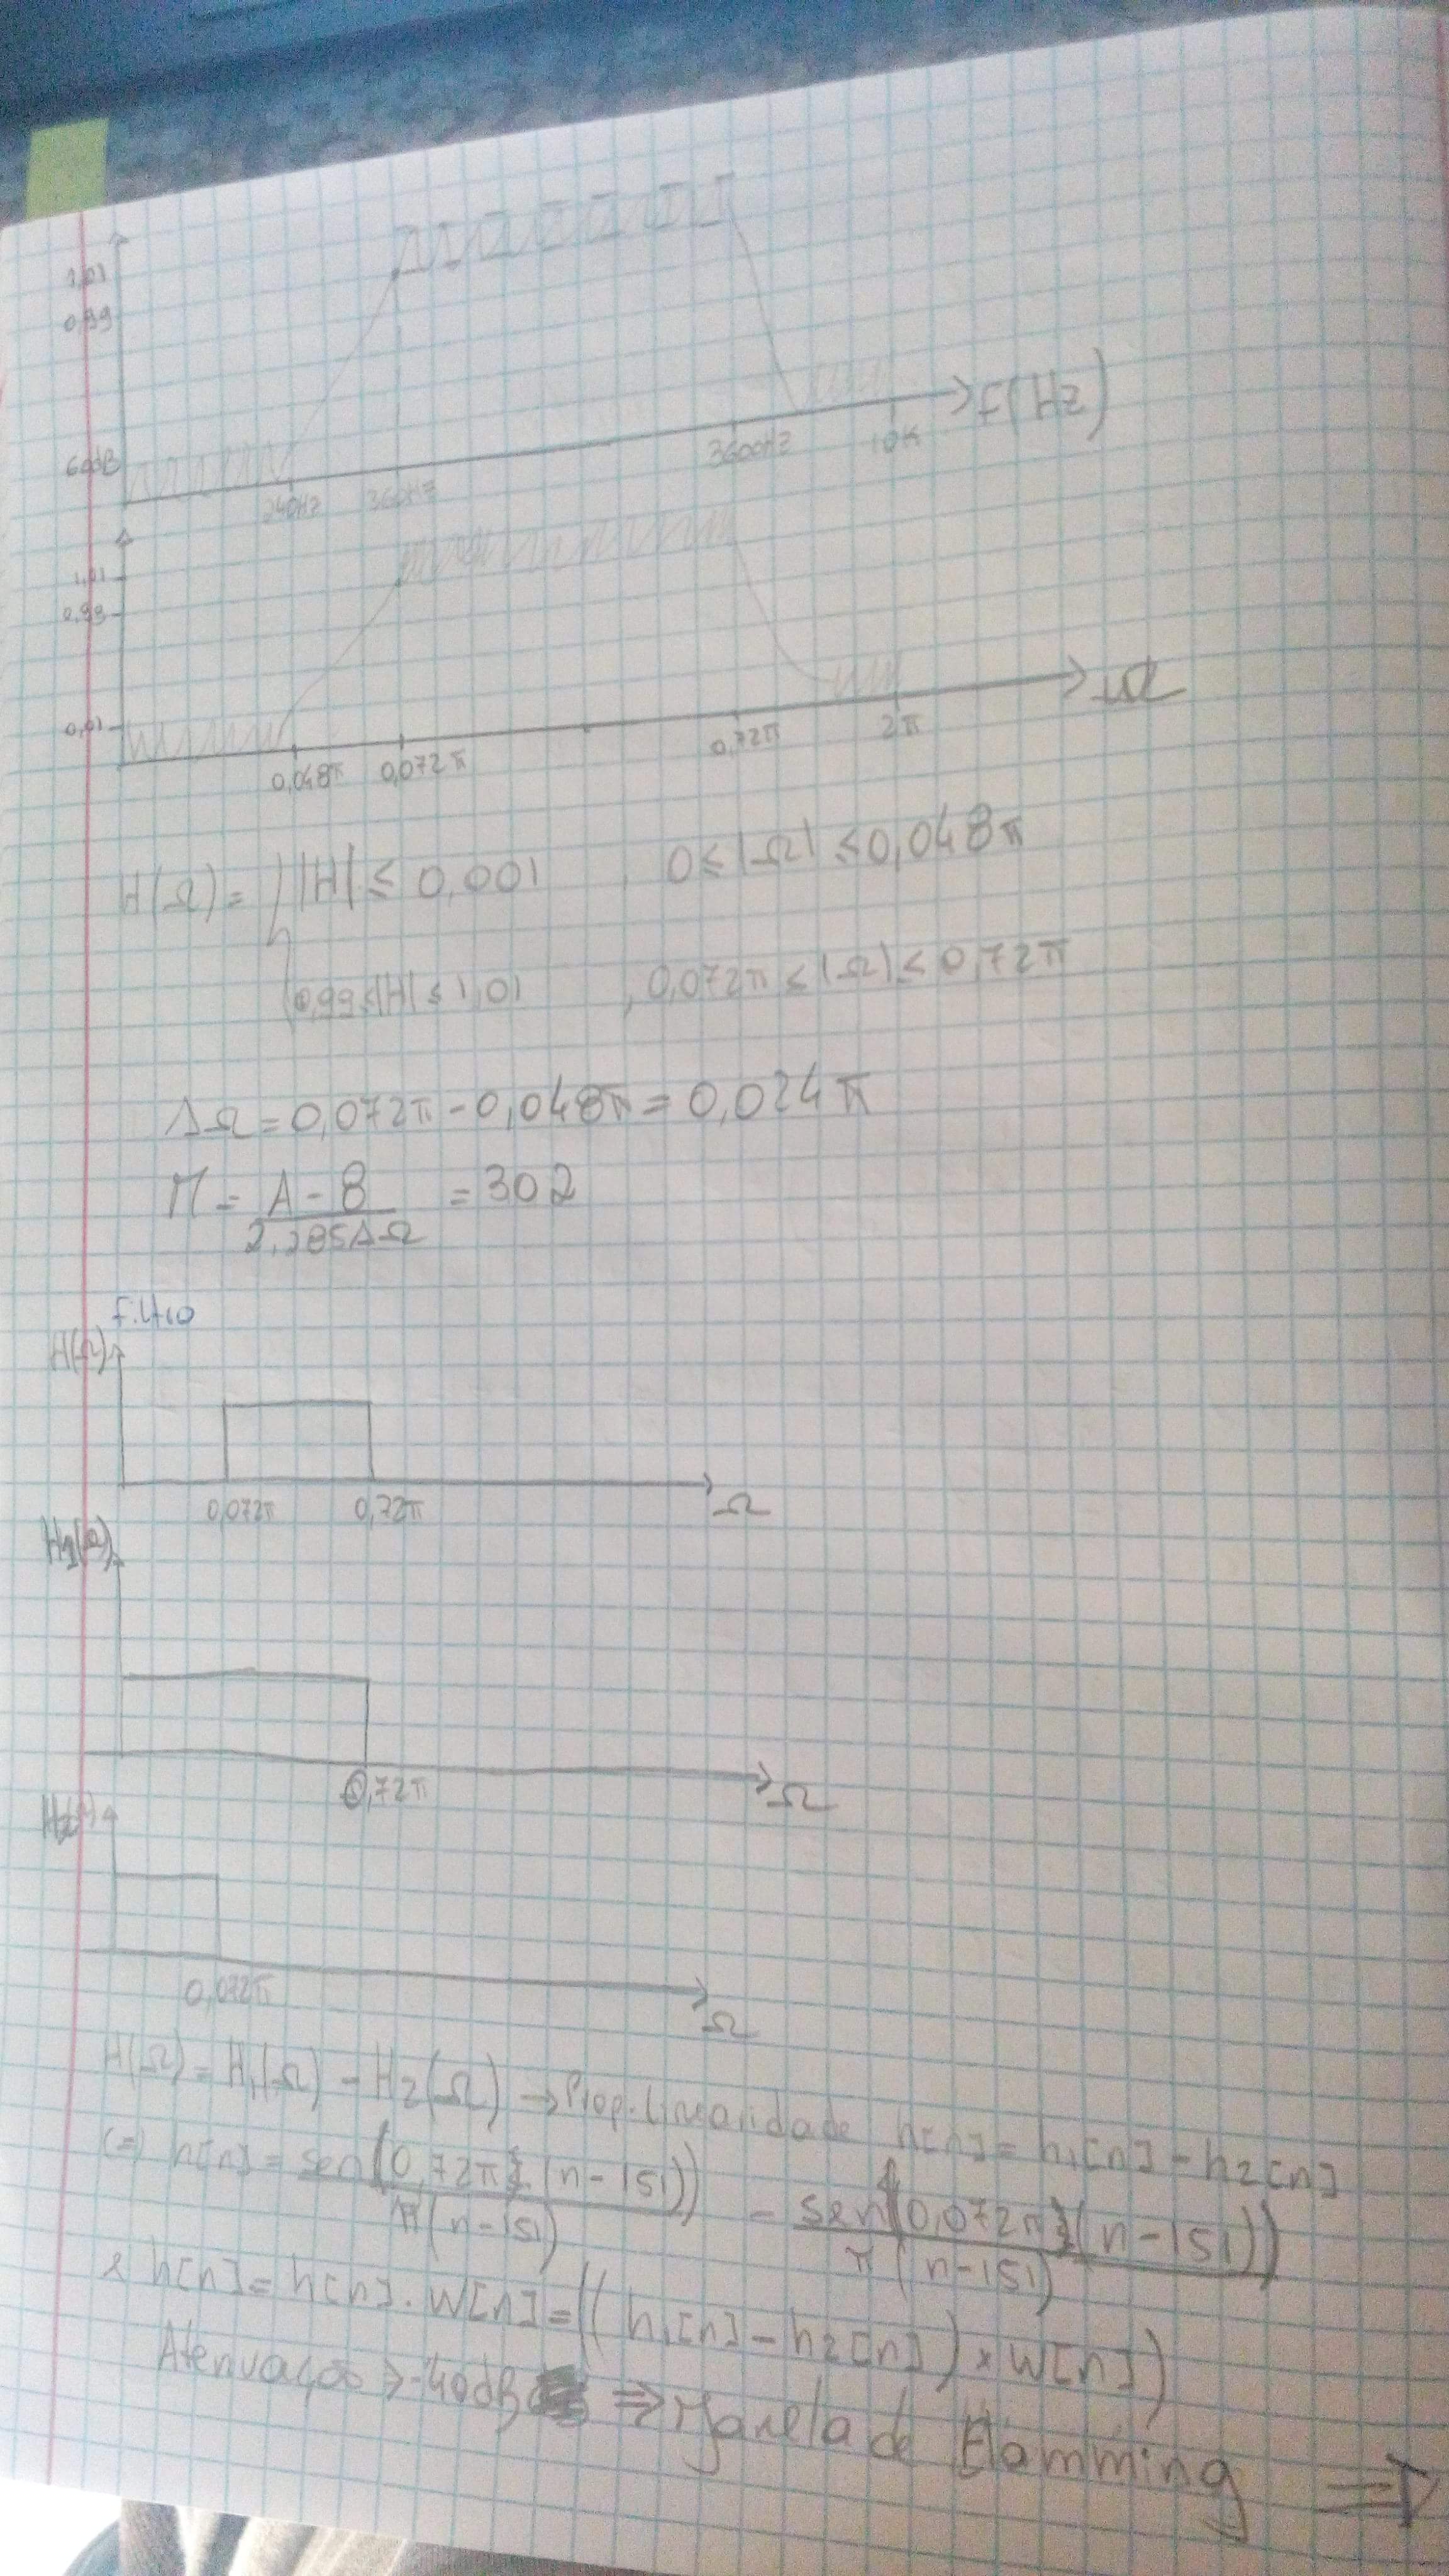 1,01
0,99
60dB
240Hz 360Hz 3600Hz 10K f(Hz)
1,01
0,99
0,01
0,048π 0,072π 0,72π 2π Ω
H(Ω) = { |H| ≤ 0,001 , 0 ≤ |Ω| ≤ 0,048π
0,99 ≤ |H| ≤ 1,01 , 0,072π ≤ |Ω| ≤ 0,72π
ΔΩ = 0,072π - 0,048π = 0,024π
M = A - 8 / 2,285ΔΩ = 302
Filtro
H(Ω)
0,072π 0,72π Ω
H1(Ω)
0,72π Ω
H2(Ω)
0,072π Ω
H(Ω) = H1(Ω) - H2(Ω) → Prop. Linearidade h[n] = h1[n] - h2[n]
(=) h[n] = sen(0,72π(n-151)) / π(n-151) - sen(0,072π(n-151)) / π(n-151)
h[n] = h[n] . W[n] = ((h1[n] - h2[n]) × W[n])
Atenuação > -40dB ⇒ Janela de Hamming ⇒